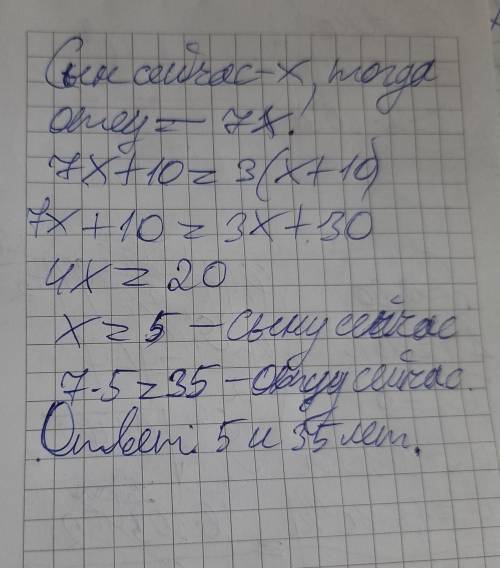 Сын сейчас - x, тогда
отец = 7x.
7x+10=3(x+10)
7x+10=3x+30
4x=20
x=5 - сыну сейчас
7·5=35 - отцу сейчас.
Ответ: 5 и 35 лет.